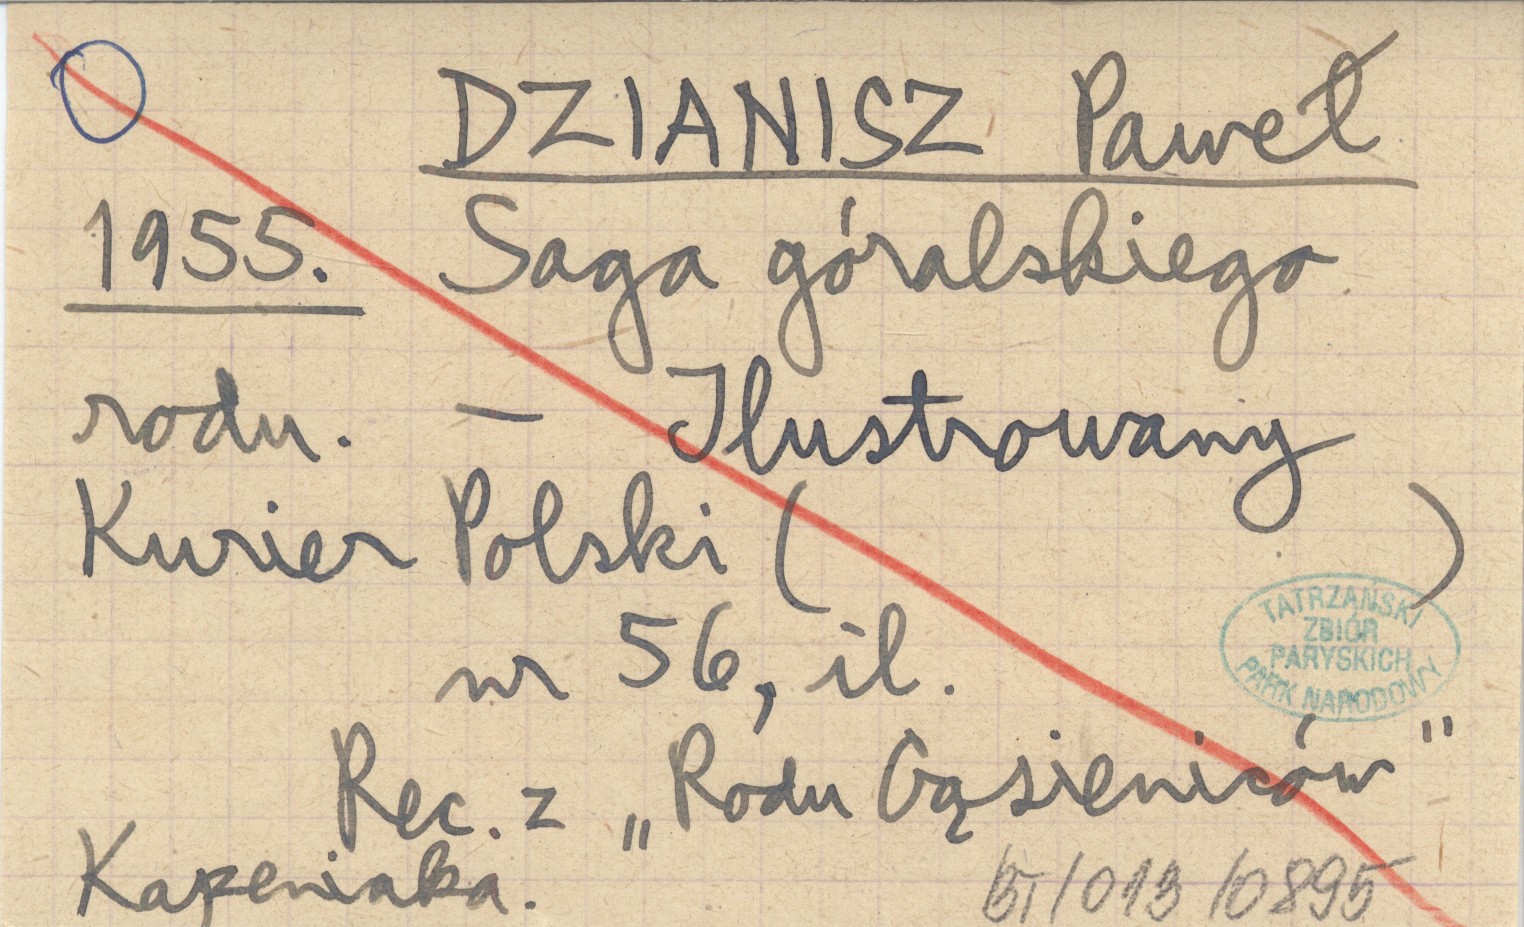 DZIANISZ Paweł
1955. Saga góralskiego
rodu. — Ilustrowany
Kurier Polski ( )
nr 56, il.
TATRZAŃSKI
ZBIÓR
PARYSKICH
PARK NARODOWY
Rec. z „Rodu Gąsieniców"
Kapeniaka.
BT/013/0895